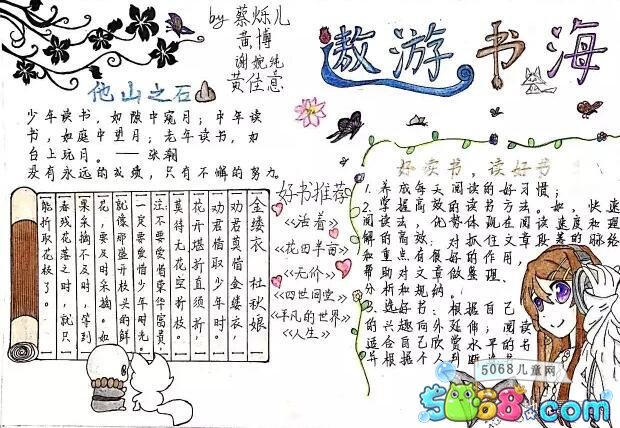 by 蔡烁儿
黄博
谢婉纯
黄佳意
遨游书海
他山之石
少年读书，如隙中窥月；中年读
书，如庭中望月；老年读书，如
台上玩月。——张潮
没有永远的成绩，只有不懈的努力。
金缕衣 杜秋娘
劝君莫惜金缕衣，
劝君惜取少年时。
花开堪折直须折，
莫待无花空折枝。
注不要爱惜荣华富贵，
一定要爱惜少年时光。
就像那盛开枝头的鲜
花，要及时采摘。如
果采摘不及时，等到
春残花落之时，就只
能折取花枝了。
好书推荐
《活着》
《花田半亩》
《无价》
《四世同堂》
《平凡的世界》
《人生》
好读书，读好书
1.养成每天阅读的好习惯；
2.掌握高效的读书方法。如，快速
阅读法，优势体现在阅读速度和理
解的高效：对抓住文章段落的脉络
和重点有很好的作用，
帮助对文章做整理、
分析和归纳。
3.选好书：根据自己
的兴趣向外延伸；阅读
适合自己欣赏水平的书
并根据个人判断选书
5068儿童网
5068.com